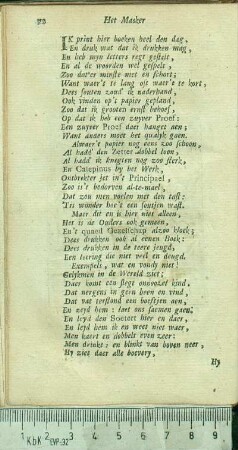 Het Masker
IK print hier boeken heel den dag,
En druk wat dat ik drukken mag,
En heb myn letters regt gestelt,
En al de woorden wel gespelt,
Zoo datter minste niet en schort;
Want waer't te lang oft waer't te kort,
Dees fouten zand ik naderhand,
Ook vinden op't papier geplant,
Zoo dat ik grooten ernst behoef,
Op dat ik heb een zuyver Proef:
Een zuyver Proef daer hanget aen;
Want anders moet het qualyk gaen.
Alwaer't papier nog eens zoo schoon,
Al hadd' den Zetter dobbel loon,
Al hadd' ik knegten nog zoo sterk,
En Catepinus by het Werk,
Ontbrekter iet in't Principael,
Zoo is't bedorven al-te-mael,
Dat zou men voelen met den tast:
'Tis wonder hoe't een foutjen vast.
Maer dit en is hier niet alleen,
Het is de Ouders ook gemeen,
En't quaed Gezelschap alzoo bloek;
Dees drukken ook al eenen Boek:
Dees drukken in de teere jeugd,
Een leering die niet veel en deugd.
Exempels, wat en vondy niet!
Gelyk men in de Wereld ziet;
Daer komt een slegt onnozel kind,
Dat nergens in geen been en vind,
Dat vat terstond een boefsjen aen,
En zeyd hem: laet ons saemen gaen.
En leyd den Soetert hier en daer,
En leyd hem ik en weet niet waer,
Men karet en dobbelt even zeer:
Men drinkt: en blinkt van boven neer,
Hy ziet daer alle boevery,
Hy
1 KbK EVP-32 2 3 4 5 6 7 8 9